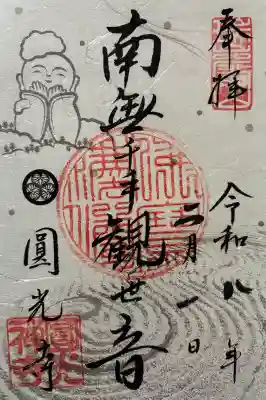 奉拝
令和八年
二月一日
南無千手觀世音
圓光寺